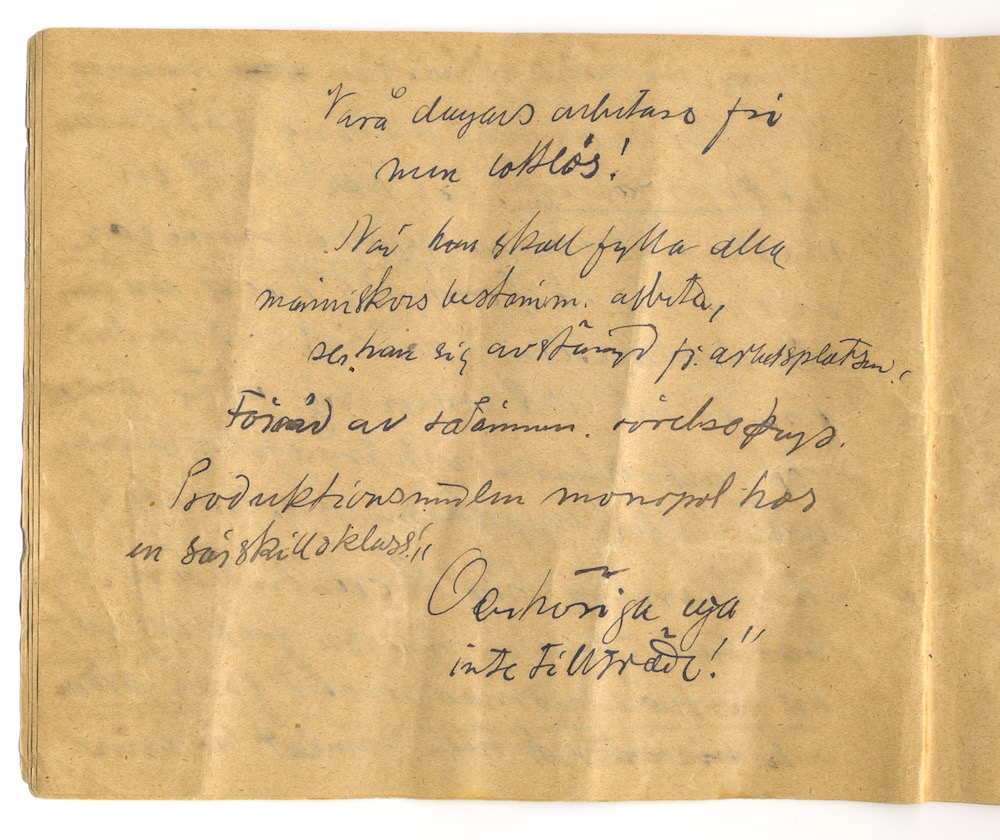 Våra dagars arbetare fri
men lottlös!
När han skall fylla alla
människors bestämm. arbeta,
ser han sig avstängd fr. arbetsplatsen.
Förråd av rörelse
Produktionsmedlen monopol hos
en särskild klass!"
Oerhöriga äga
inte tillträde!"